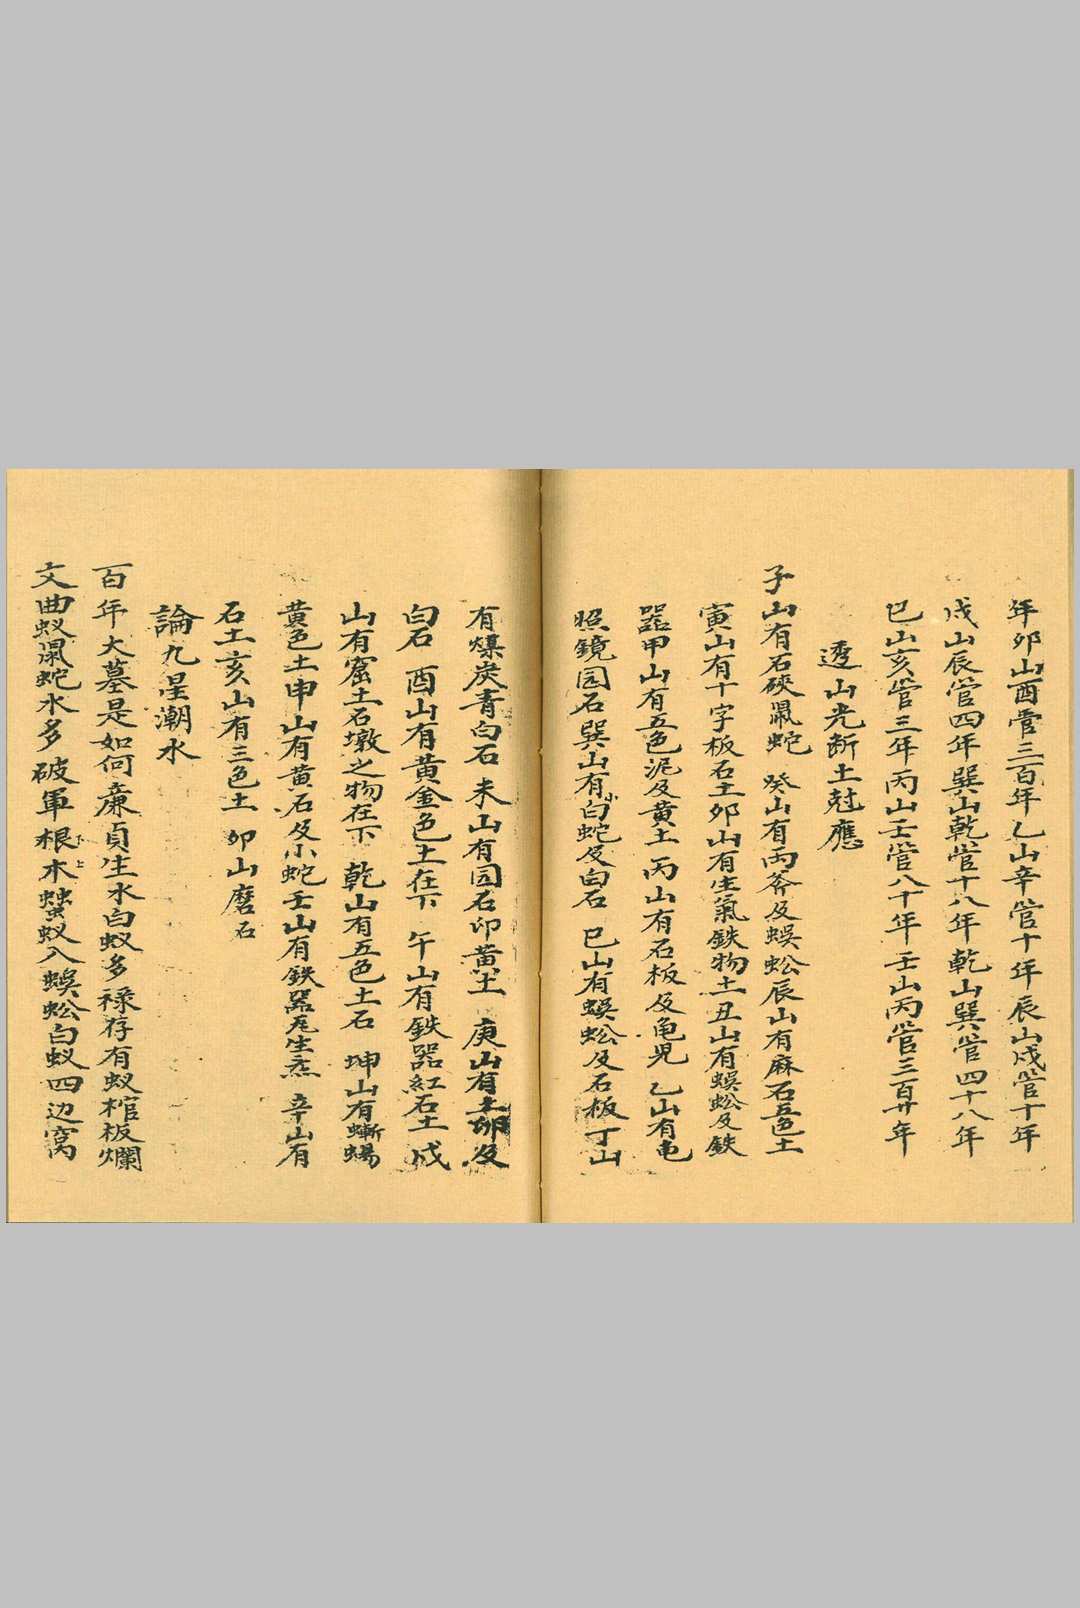 年卯山酉管三百年乙山辛管十年辰山戌管十年
戌山辰管四年巽山乾管十八年乾山巽管四十八年
巳山亥管三年丙山壬管八十年壬山丙管三百廿年
透山光断土尅應
子山有石硤鼠蛇 癸山有丙斧及蜈蚣辰山有麻石五色土
寅山有十字板石土卯山有生氣鉄物土丑山有蜈蚣及鉄
器甲山有五色泥及黄土丙山有石板及亀児乙山有亀
照鏡园石巽山有小白蛇及白石 巳山有蜈蚣及石板丁山
有煤炭青白石未山有园石卯黄土 庚山有土卵及
白石 酉山有黄金色土在下 午山有鉄器紅石土戌
山有窟土石墩之物在下 乾山有五色土石 坤山有蜥蝪
黄色土申山有黄石及小蛇壬山有鉄器瓦生炁 辛山有
石土亥山有三色土 卯山磨石
論九星潮水
百年大墓是如何亷貞生水白蚁多禄存有蚁棺板爛
文曲蚁鼠蛇水多破軍根下木上蟲蚁入蜈蚣白蚁四边窝